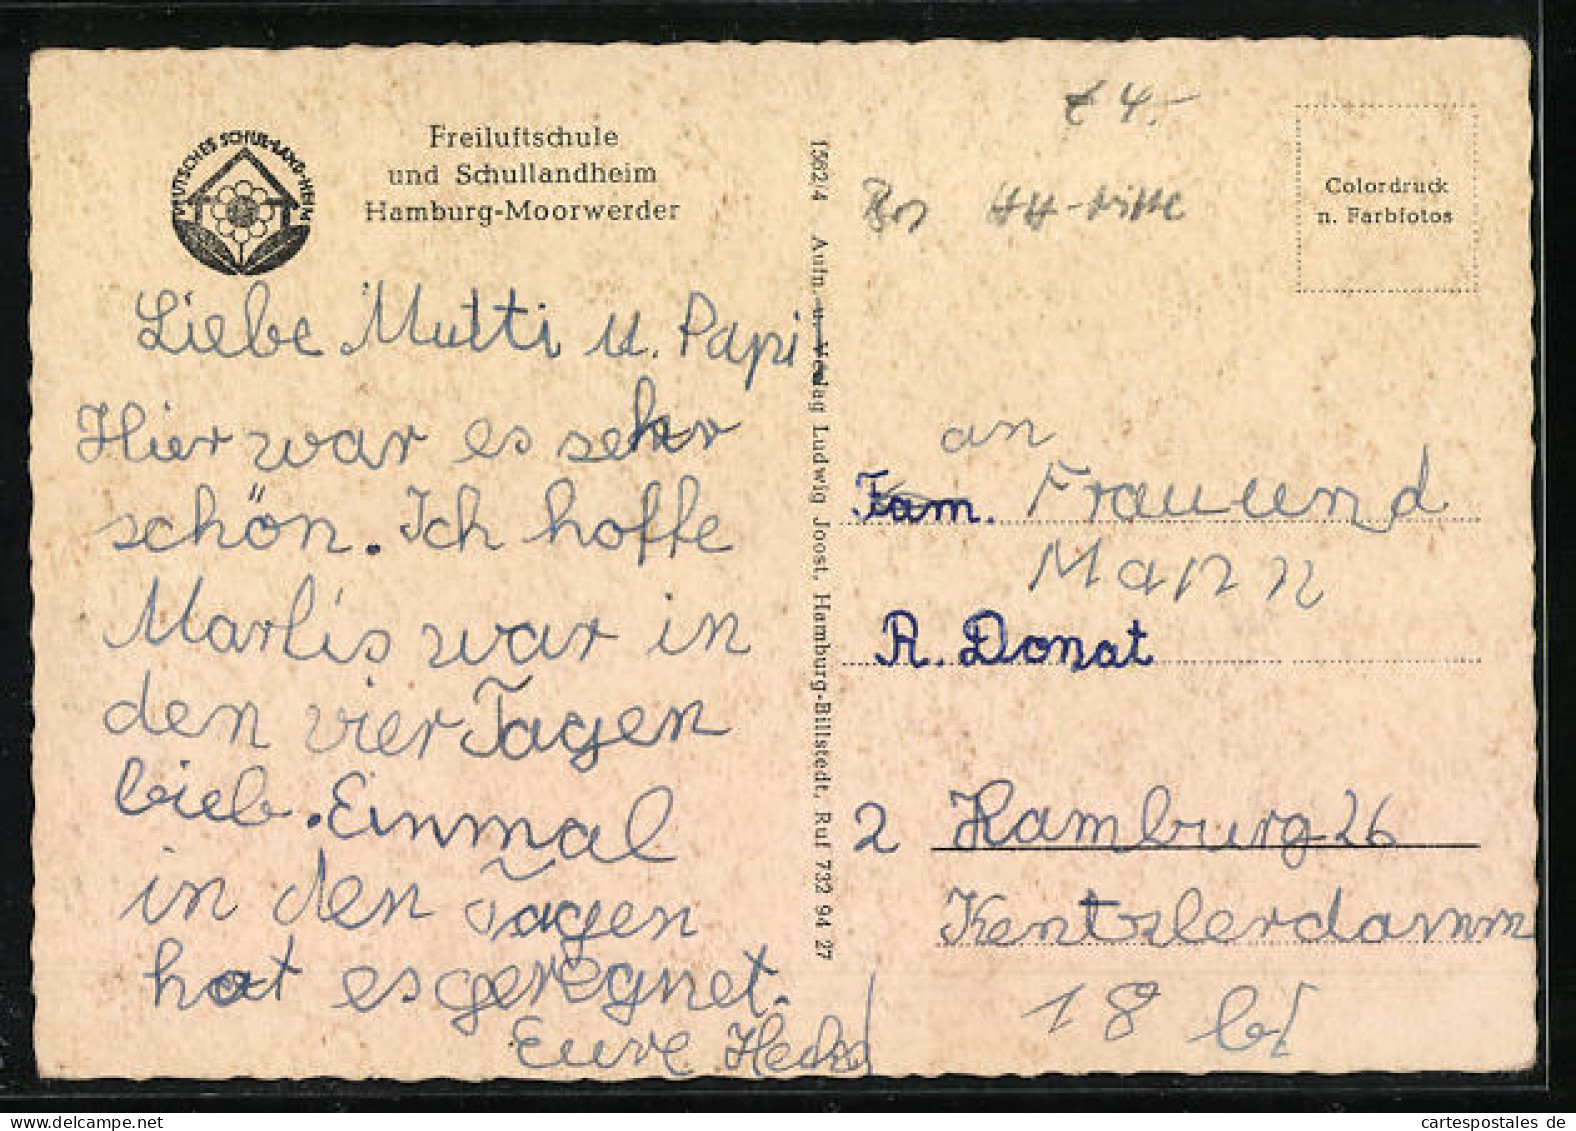 DEUTSCHES SCHUL-LAND-HEIM
Freiluftschule
und Schullandheim
Hamburg-Moorwerder
Liebe Mutti u. Papi
Hier war es sehr
schön. Ich hoffe
Marlis war in
den vier Tagen
lieb. Einmal
in den Tagen
hat es geregnet.
Eure
1562/4 Aufn. u. Verlag Ludwig Joost, Hamburg-Billstedt, Ruf 732 94 27
4.-
HH-Mitte
Colordruck
n. Farbfotos
an
Fam. Frau und
Mann
R. Donat
2 Hamburg 26
Kentzlerdamm
18
cartespostales de